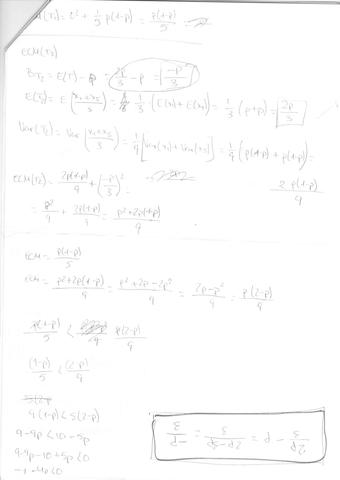 ECM(T₁) = 0² + 1/5 p(1-p) = p(1-p)/5
ECM(T₂)
B_T₂ = E(T) - p = 2p/3 - p = -p/3
E(T₂) = E(x₁+x₂/3) = 1/3 (E(x₁)+E(x₂)) = 1/3 (p+p) = 2p/3
Var(T₂) = Var(x₁+x₂/3) = 1/9 [Var(x₁)+Var(x₂)] = 1/9 (p(1-p) + p(1-p)) = 2p(1-p)/9
ECM(T₂) = 2p(1-p)/9 + (-p/3)² =
= p²/9 + 2p(1-p)/9 = p²+2p(1-p)/9
ECM = p(1-p)/5
ECM = p²+2p(1-p)/9 = p²+2p-2p²/9 = 2p-p²/9 = p(2-p)/9
p(1-p)/5 < p(2-p)/9
(1-p)/5 < (2-p)/9
9(1-p) < 5(2-p)
9-9p < 10-5p
9-9p-10+5p < 0
-1-4p < 0
2p/3 - p = 2p-3p/3 = -p/3